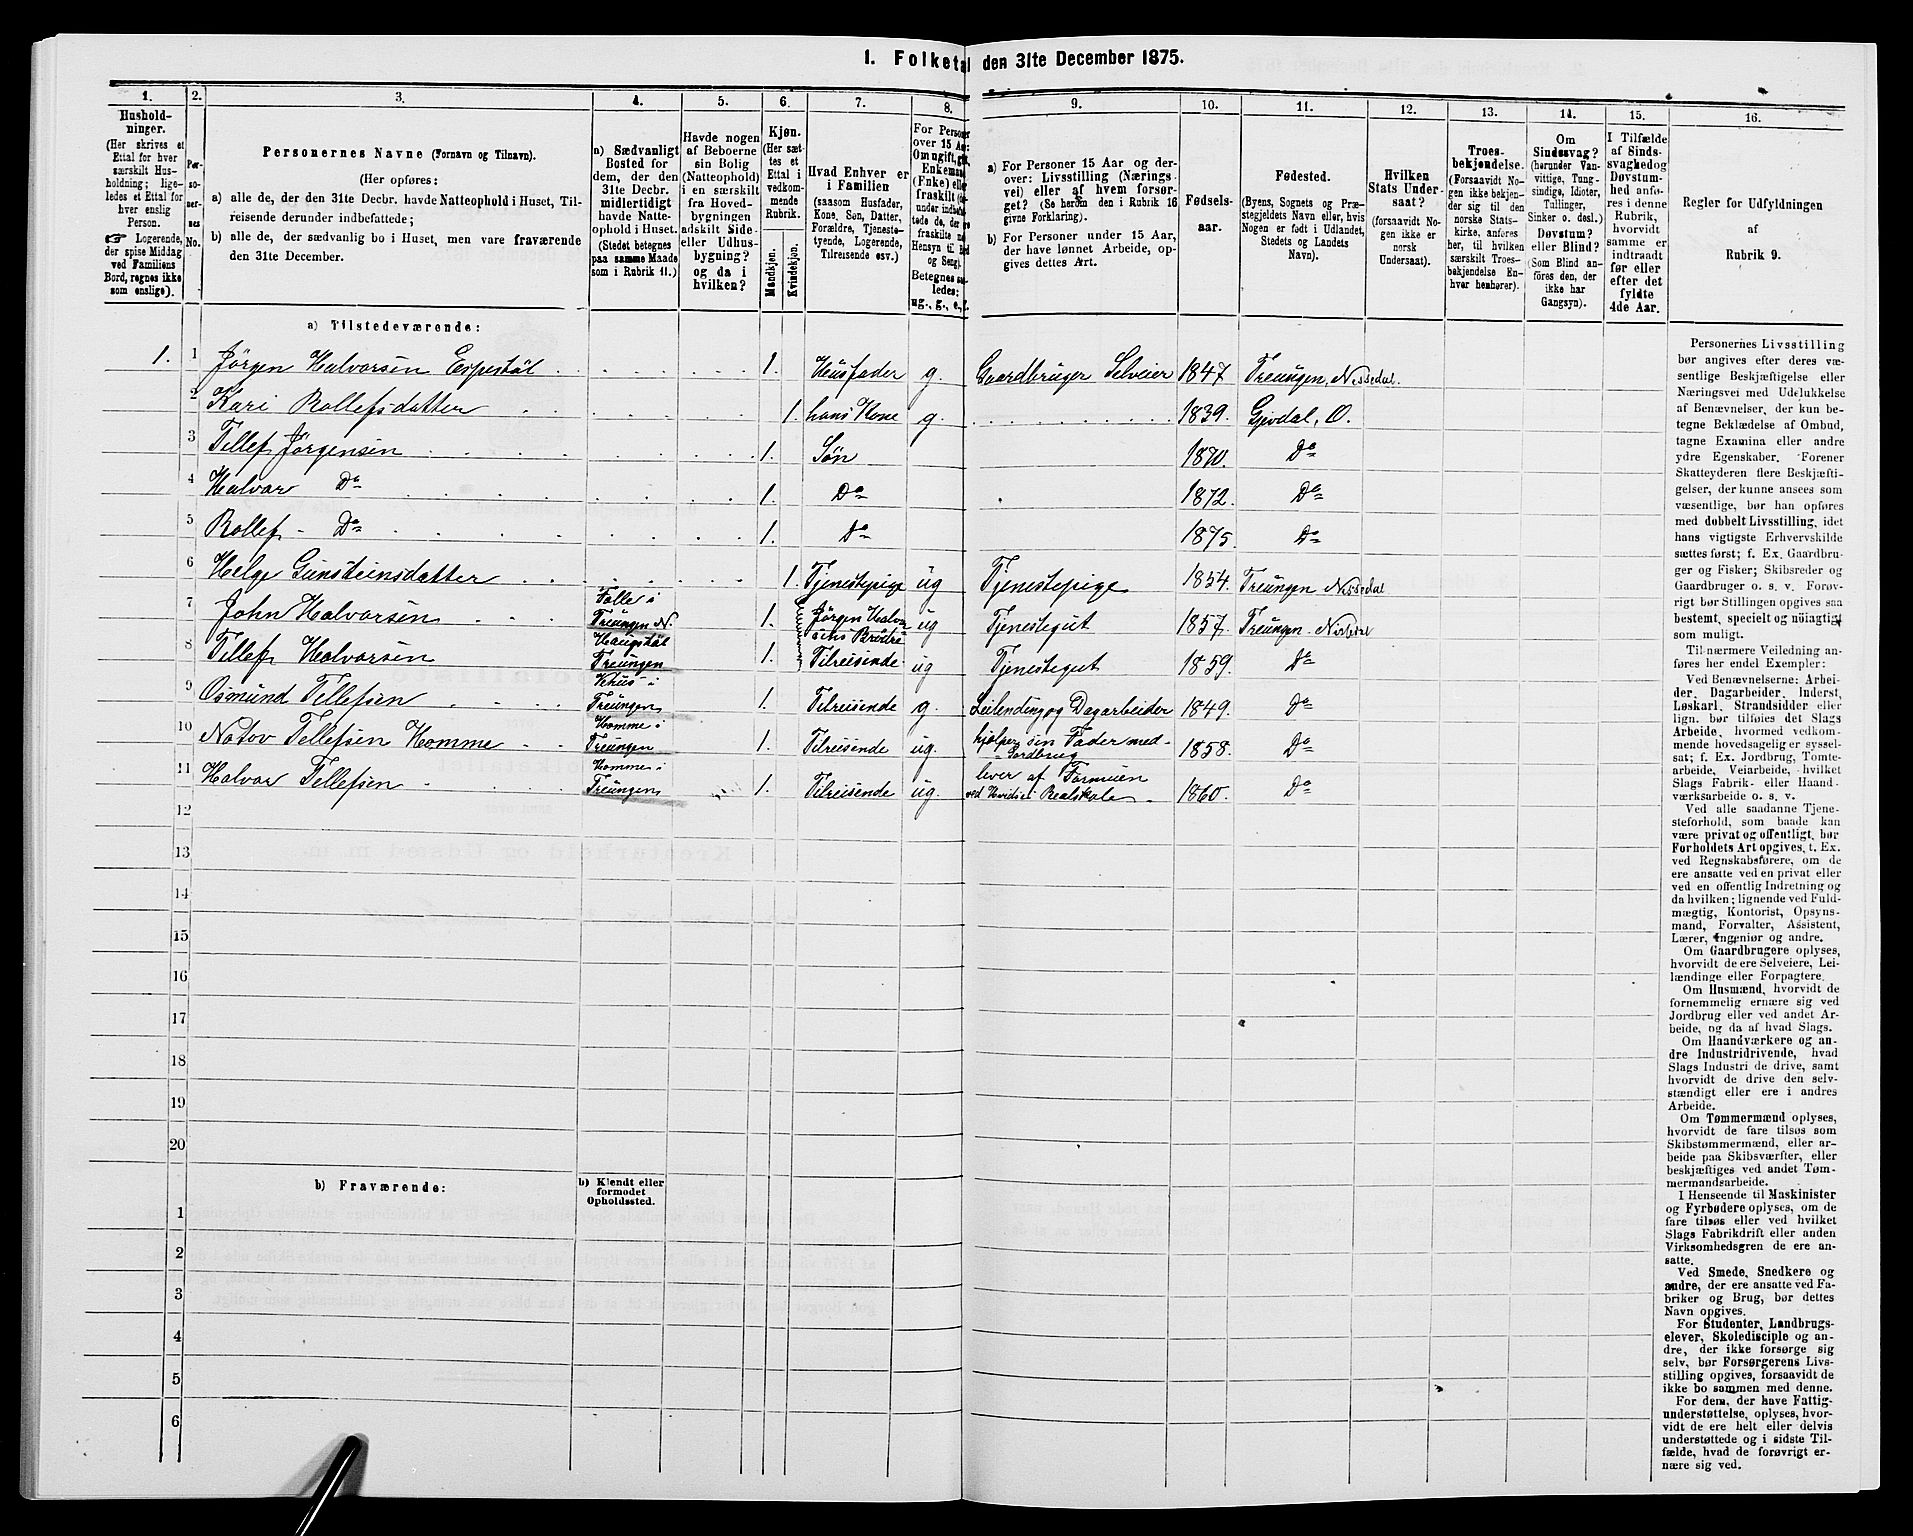 1. Folketal den 31te December 1875.
1.
2.
3.
4.
5.
6.
7.
8.
9.
10.
11.
12.
13.
14.
15.
16.
Hushold-
ninger.
(Her skrives et
Ettal for hver
særskilt Hus-
holdning; lige-
ledes et Ettal for
hver enslig
Person.
☞ Logerende,
der spise Middag
ved Familiens
Bord, regnes ikke
som enslige).
Per-
so-
ner-
nes
No.
Personernes Navne (Fornavn og Tilnavn).
(Her opføres:
a) alle de, der den 31te Decbr. havde Natteophold i Huset, Til-
reisende derunder indbefattede;
b) alle de, der sædvanlig bo i Huset, men vare fraværende
den 31te December.
a) Sædvanligt
Bosted for
dem, der den
31te Decbr.
midlertidigt
havde Natte-
ophold i Huset.
(Stedet betegnes
paa samme Maade
som i Rubrik 11.)
Havde nogen
af Beboerne
sin Bolig
(Natteophold)
i en særskilt
fra Hoved-
bygningen
adskilt Side-
eller Udhus-
bygning?
og da i
hvilken?
Kjøn.
(Her sæt-
tes et
Ettal i
vedkom-
mende
Rubrik.
Mandkjøn.
Kvindekjøn.
Hvad Enhver er
i Familien
(saasom Husfader,
Kone, Søn, Datter,
Forældre, Tjeneste-
tyende, Logerende,
Tilreisende osv.)
For Personer
over 15 Aar:
Om ugift, gift,
Enkemand
(Enke) eller
fraskilt
Betegnes saa-
ledes:
ug., g., e., f.
a) For Personer 15 Aar og der-
over: Livsstilling (Nærings-
vei) eller af hvem forsør-
get? (Se herom den i Rubrik 16
givne Forklaring).
b) For Personer under 15 Aar,
der have lønnet Arbeide, op-
gives dettes Art.
Fødsels-
aar.
Fødested.
(Byens, Sognets og Præ-
stegjeldets Navn eller, hvis
Nogen er født i Udlandet,
Stedets og Landets
Navn).
Hvilken
Stats Under-
saat?
(forsaavidt No-
gen ikke er
norsk
Undersaat).
Troes-
bekjendelse.
(Forsaavidt No-
gen ikke bekjen-
der sig til den
norske Stats-
kirke, anføres
her, til hvilken
særskilt Troes-
bekjendelse En-
hver henhører).
Om
Sindssvag?
(herunder Van-
vittige, Tung-
sindige, Idioter,
Tullinger,
Sinker o. desl.)
Døvstum?
eller Blind?
(Som Blind an-
føres den, der
ikke har
Gangsyn).
I Tilfælde
af Sinds-
svaghed og
Døvstum-
hed anfø-
res i denne
Rubrik,
hvorvidt
samme er
indtraadt
før eller
efter det
fyldte
4de Aar.
Regler for Udfyldningen
af
Rubrik 9.
a) Tilstedeværende:
1. 1 Jörgen Halvorsen Espestöl 1. Husfader g. Gaardbruger Selveier 1847 Treungen, Nissedal.
2 Kari Rollefsdatter 1. hans Kone g. 1839. Gjevdal, O.
3 Tellef Jörgensen 1. Søn 1870. Do
4 Halvor Do 1. Do 1872. Do
5 Rollef Do 1. Do 1875. Do
6 Helge Gunsteinsdatter 1. Tjenestepige ug Tjenestepige 1854. Treungen Nissedal
7 John Halvorsen Treungen N 1. Jörgen Halvor- ug Tjenestegut 1857. Treungen. Nissedal
sens Brödre
8 Tellef Halvorsen Haugstöl Treungen 1. Tilreisende ug Tjenestegut 1859. Do
9 Osmund Tellefsen Treungen 1. Tilreisende g. Leilending og Dagarbeider 1849. Do
10 Notov Tellefsen Homme Homme i Treungen 1. Tilreisende ug. hjelper sin Fader med Jordbrug 1858. Do
11 Halvor Tellefsen Homme i Treungen 1. Tilreisende ug. lever af Formuen 1860. Do
12
13
14
15
16
17
18
19
20
b) Fraværende:
b) Kjendt eller
formodet
Opholdssted.
1
2
3
4
5
6
Personernes Livsstilling
bør angives efter deres væ-
sentlige Beskjæftigelse eller
Næringsvei med Udelukkelse
af Benævnelser, der kun be-
tegne Beklædelse af Ombud,
tagne Examina eller andre
ydre Egenskaber. Forener
Skatteyderen flere Beskjæfti-
gelser, der kunne ansees som
væsentlige, bør han opføres
med dobbelt Livsstilling, idet
hans vigtigste Erhvervskilde
sættes først; f. Ex. Gaardbru-
ger og Fisker; Skibsreder og
Gaardbruger o. s. v. Forøv-
rigt bør Stillingen opgives saa
bestemt, specielt og nøiagtigt
som muligt.
Til nærmere Veiledning an-
føres her endel Exempler:
Ved Benævnelserne: Arbei-
der, Dagarbeider, Inderst,
Løskarl, Strandsidder eller
lign. bør tilføies det Slags
Arbeide, hvormed vedkom-
mende hovedsagelig er syssel-
sat; f. Ex. Jordbrug, Tomte-
arbeide, Veiarbeide, hvilket
Slags Fabrik- eller Haand-
værksarbeide o. s. v.
Ved alle saadanne Tjene-
steforhold, som baade kan
være privat og offentligt, bør
Forholdets Art opgives, t. Ex.
ved Regnskabsførere, om de
ere ansatte ved en privat eller
ved en offentlig Indretning og
da hvilken; lignende ved Fuld-
mægtig, Kontorist, Opsyns-
mand, Forvalter, Assistent,
Lærer, Ingeniør og andre.
Om Gaardbrugere oplyses,
hvorvidt de ere Selveiere, Lei-
lændinge eller Forpagtere.
Om Husmænd, hvorvidt de
fornemmelig ernære sig ved
Jordbrug eller ved andet Ar-
beide, og da af hvad Slags.
Om Haandværkere og an-
dre Industridrivende, hvad
Slags Industri de drive, samt
hvorvidt de drive den selv-
stændigt eller ere i andres
Arbeide.
Om Tømmermænd oplyses,
hvorvidt de fare tilsøs som
Skibstømmermænd, eller ar-
beide paa Skibsværfter, eller
beskjæftiges ved andet Tøm-
mermandsarbeide.
I Henseende til Maskinister
og Fyrbødere oplyses, om de
fare tilsøs eller ved hvilket
Slags Fabrikdrift eller anden
Virksomhedsgren de ere an-
satte.
Ved Smede, Snedkere og
andre, der ere ansatte ved Fa-
briker og Brug, bør dettes
Navn opgives.
For Studenter, Landbrugs-
elever, Skoledisciple og an-
dre, der ikke forsørge sig
selv, bør Forsørgerens Livs-
stilling opgives, forsaavidt de
ikke bo sammen med denne.
For dem, der have Fattig-
understøttelse, oplyses, hvor-
vidt de ere helt eller delvis
understøttede og i sidste Til-
fælde, hvad de forøvrigt er-
nære sig ved.